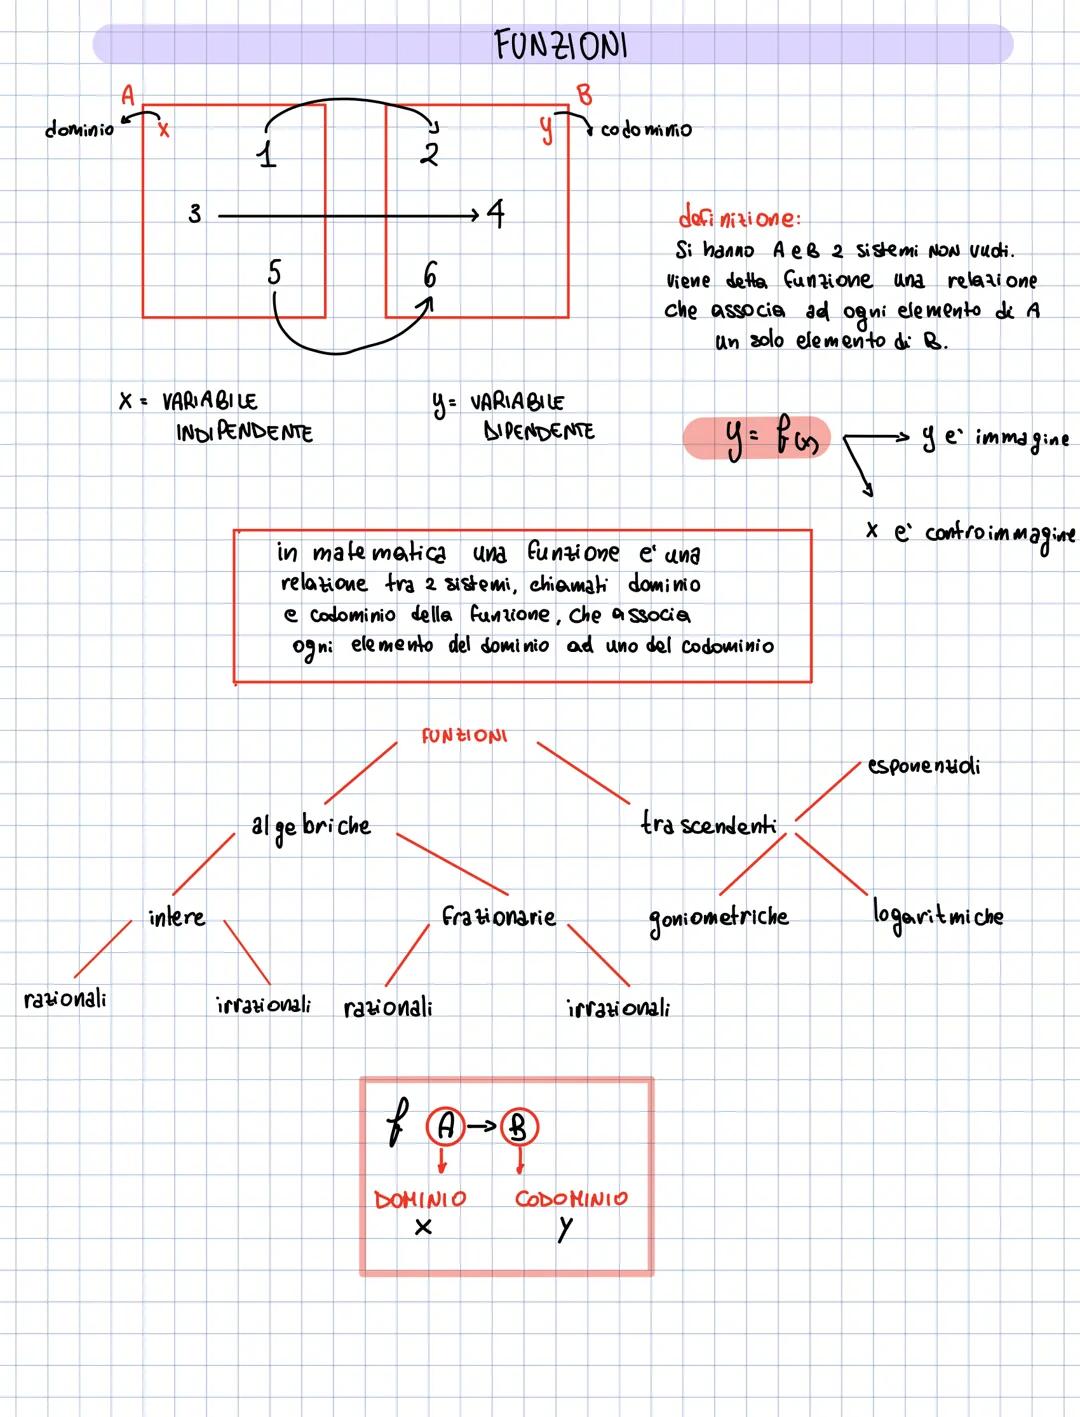 FUNZIONI
A
B
dominio
x
y
codominio
1
2
3
4
5
6
definizione:
Si hanno A e B 2 sistemi NON vuoti.
viene detta funzione una relazione
che associa ad ogni elemento di A
un solo elemento di B.
x = VARIABILE
INDIPENDENTE
y = VARIABILE
DIPENDENTE
y = f(x)
y e' immagine
x e' controimmagine
in matematica una funzione e' una
relazione tra 2 sistemi, chiamati dominio
e codominio della funzione, che associa
ogni elemento del dominio ad uno del codominio
FUNZIONI
esponenziali
algebriche
trascendenti
intere
frazionarie
goniometriche
logaritmiche
razionali
irrazionali
razionali
irrazionali
f A → B
DOMINIO
CODOMINIO
x
y